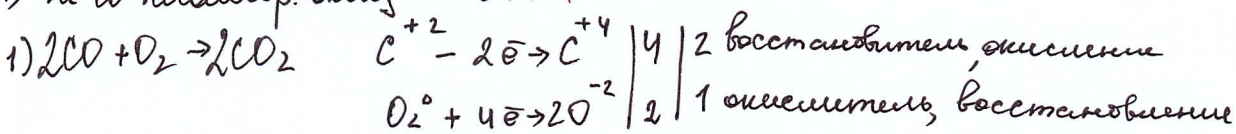 1) 2CO + O₂ → 2CO₂ C⁺² - 2ē → C⁺⁴ | 4 | 2 восстановитель, окисление
O₂⁰ + 4ē → 2O⁻² | 2 | 1 окислитель, восстановление